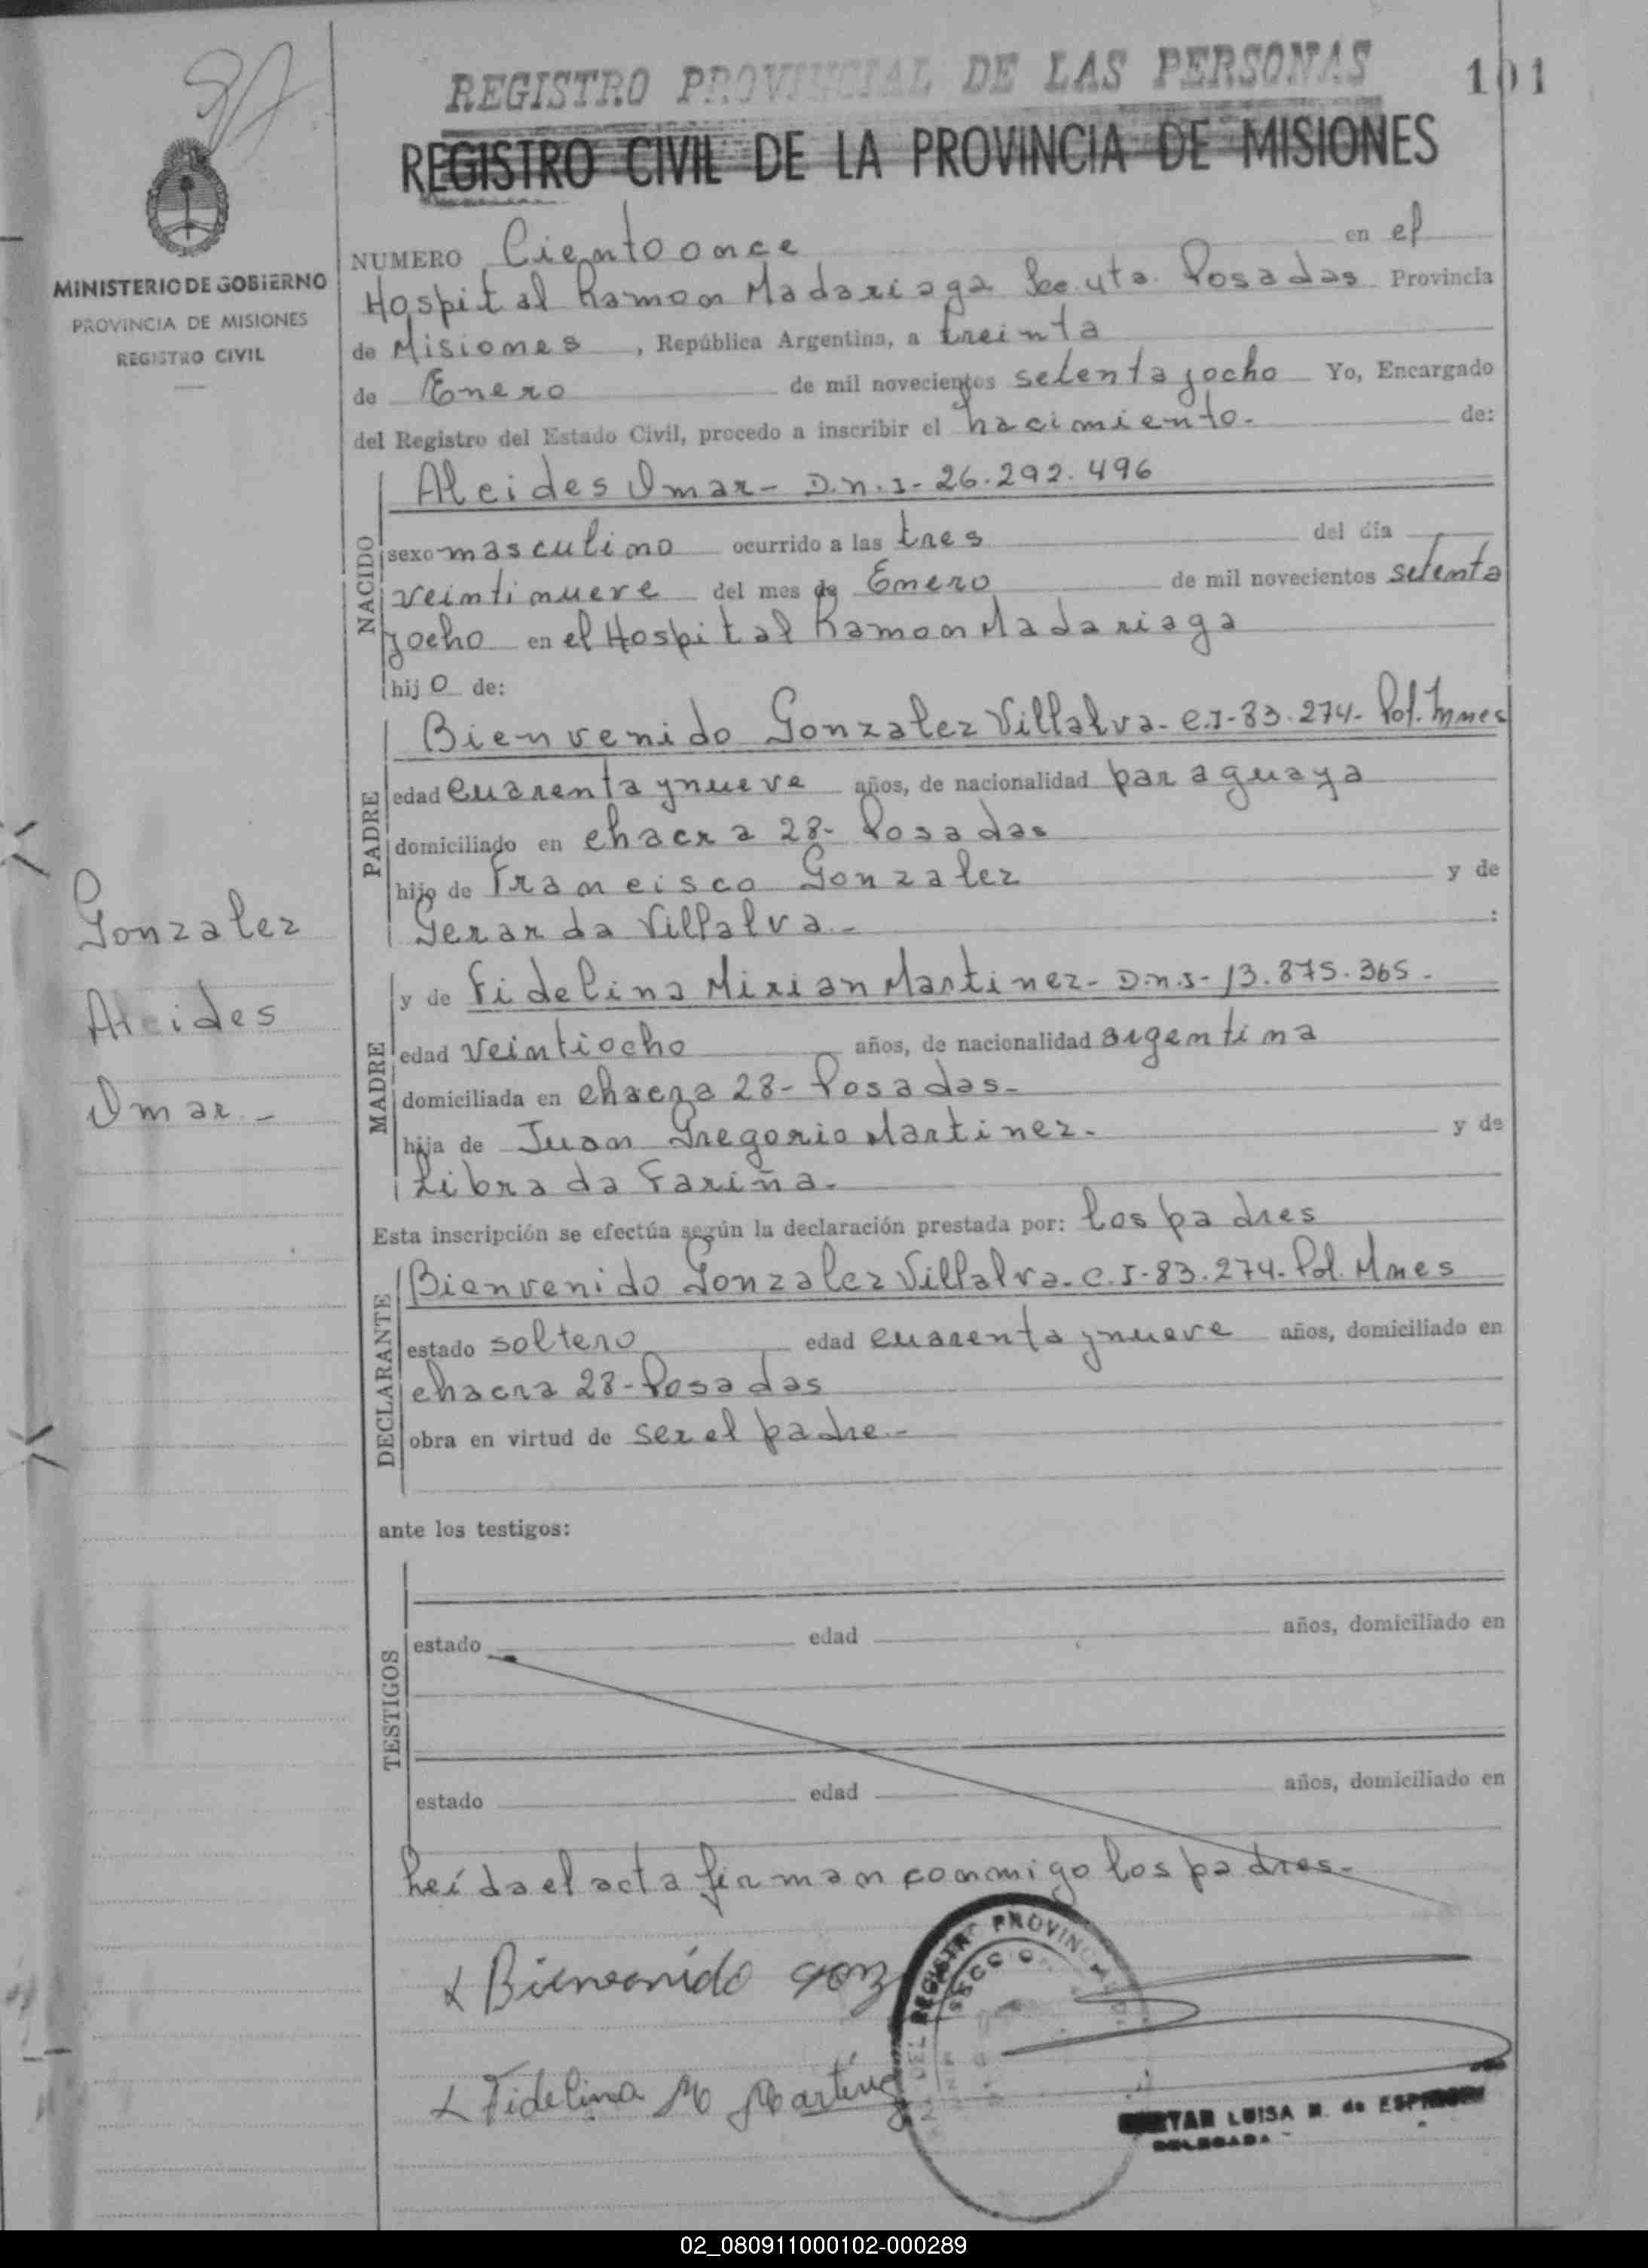 REGISTRO PROVINCIAL DE LAS PERSONAS
101
REGISTRO CIVIL DE LA PROVINCIA DE MISIONES
MINISTERIO DE GOBIERNO
PROVINCIA DE MISIONES
REGISTRO CIVIL
NUMERO Ciento once en el
Hospital Ramon Madariaga Posadas Provincia
de Misiones, República Argentina, a treinta
de Enero de mil novecientos setenta y ocho Yo, Encargado
del Registro del Estado Civil, procedo a inscribir el nacimiento.- de:
NACIDO
Alcides Omar - D.n.I- 26.292.496
sexo masculino ocurrido a las tres del día
veintinueve del mes de Enero de mil novecientos setenta
y ocho en el Hospital Ramon Madariaga
hijo de:
PADRE
Bienvenido Gonzalez Villalva- C.I-83.274- Pol. Mnes
edad cuarenta y nueve años, de nacionalidad paraguaya
domiciliado en chacra 28- Posadas
hijo de Francisco Gonzalez y de
Gerarda Villalva.- :
MADRE
y de Fidelina Mirian Martinez- D.n.I- 13.875.365.-
edad veintiocho años, de nacionalidad argentina
domiciliada en chacra 28- Posadas-
hija de Juan Gregorio Martinez.- y de
Librada Fariña.-
Gonzalez
Alcides
Omar-
Esta inscripción se efectúa según la declaración prestada por: los padres
DECLARANTE
Bienvenido Gonzalez Villalva- C.I-83.274- Pol. Mnes
estado soltero edad cuarenta y nueve años, domiciliado en
chacra 28- Posadas
obra en virtud de ser el padre.-
ante los testigos:
TESTIGOS
estado edad años, domiciliado en
estado edad años, domiciliado en
Leída el acta firman conmigo los padres-
Bienvenido Gonz
Fidelina M Martinez
REGISTRO PROVINCIAL
LUISA M. de
DELEGADA
02_080911000102-000289